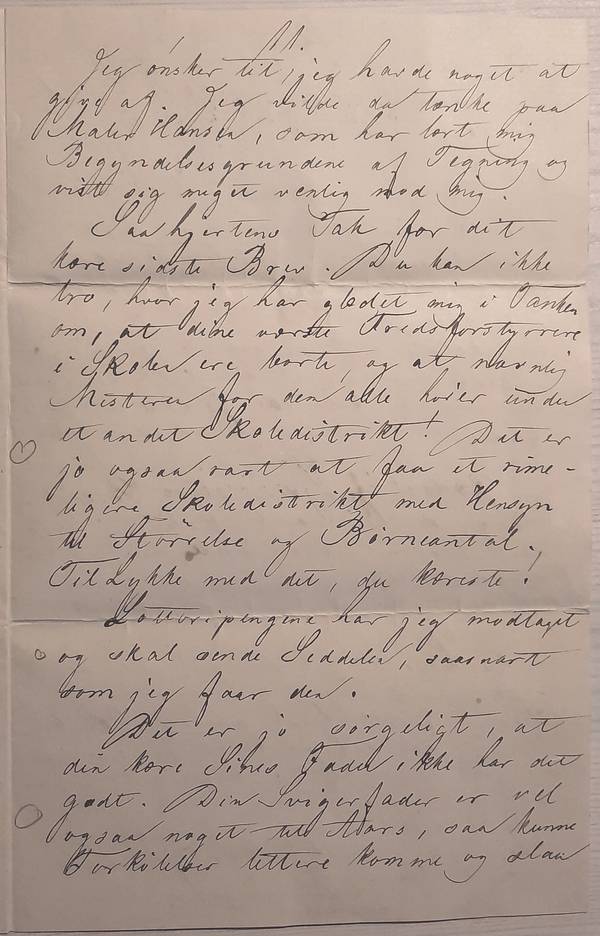 11.
Jeg ønsker tit, jeg havde noget at
give af. Jeg vilde da tænke paa
Maler Hansen, som har lært mig
Begyndelsesgrundene af Tegning og
vist sig meget venlig mod mig.
Saa hjertens Tak for dit
kære sidste Brev. Du kan ikke
tro, hvor jeg har glædet mig i Tanken
om, at dine værste Fredsforstyrrere
i Skolen ere borte, og at navnlig
Mesteren for dem alle hører under
et andet Skoledistrikt! Det er
jo ogsaa rart at faa et rime-
ligere Skoledistrikt med Hensyn
til Størrelse og Børneantal.
Til Lykke med det, du kæreste!
Lotteripengene har jeg modtaget
og skal sende Seddelen, saasnart
som jeg faar den.
Det er jo sørgeligt, at
din kære Sines Fader ikke har det
godt. Din Svigerfader er vel
ogsaa noget til Aars, saa kunne
Forkølelser lettere komme og slaa